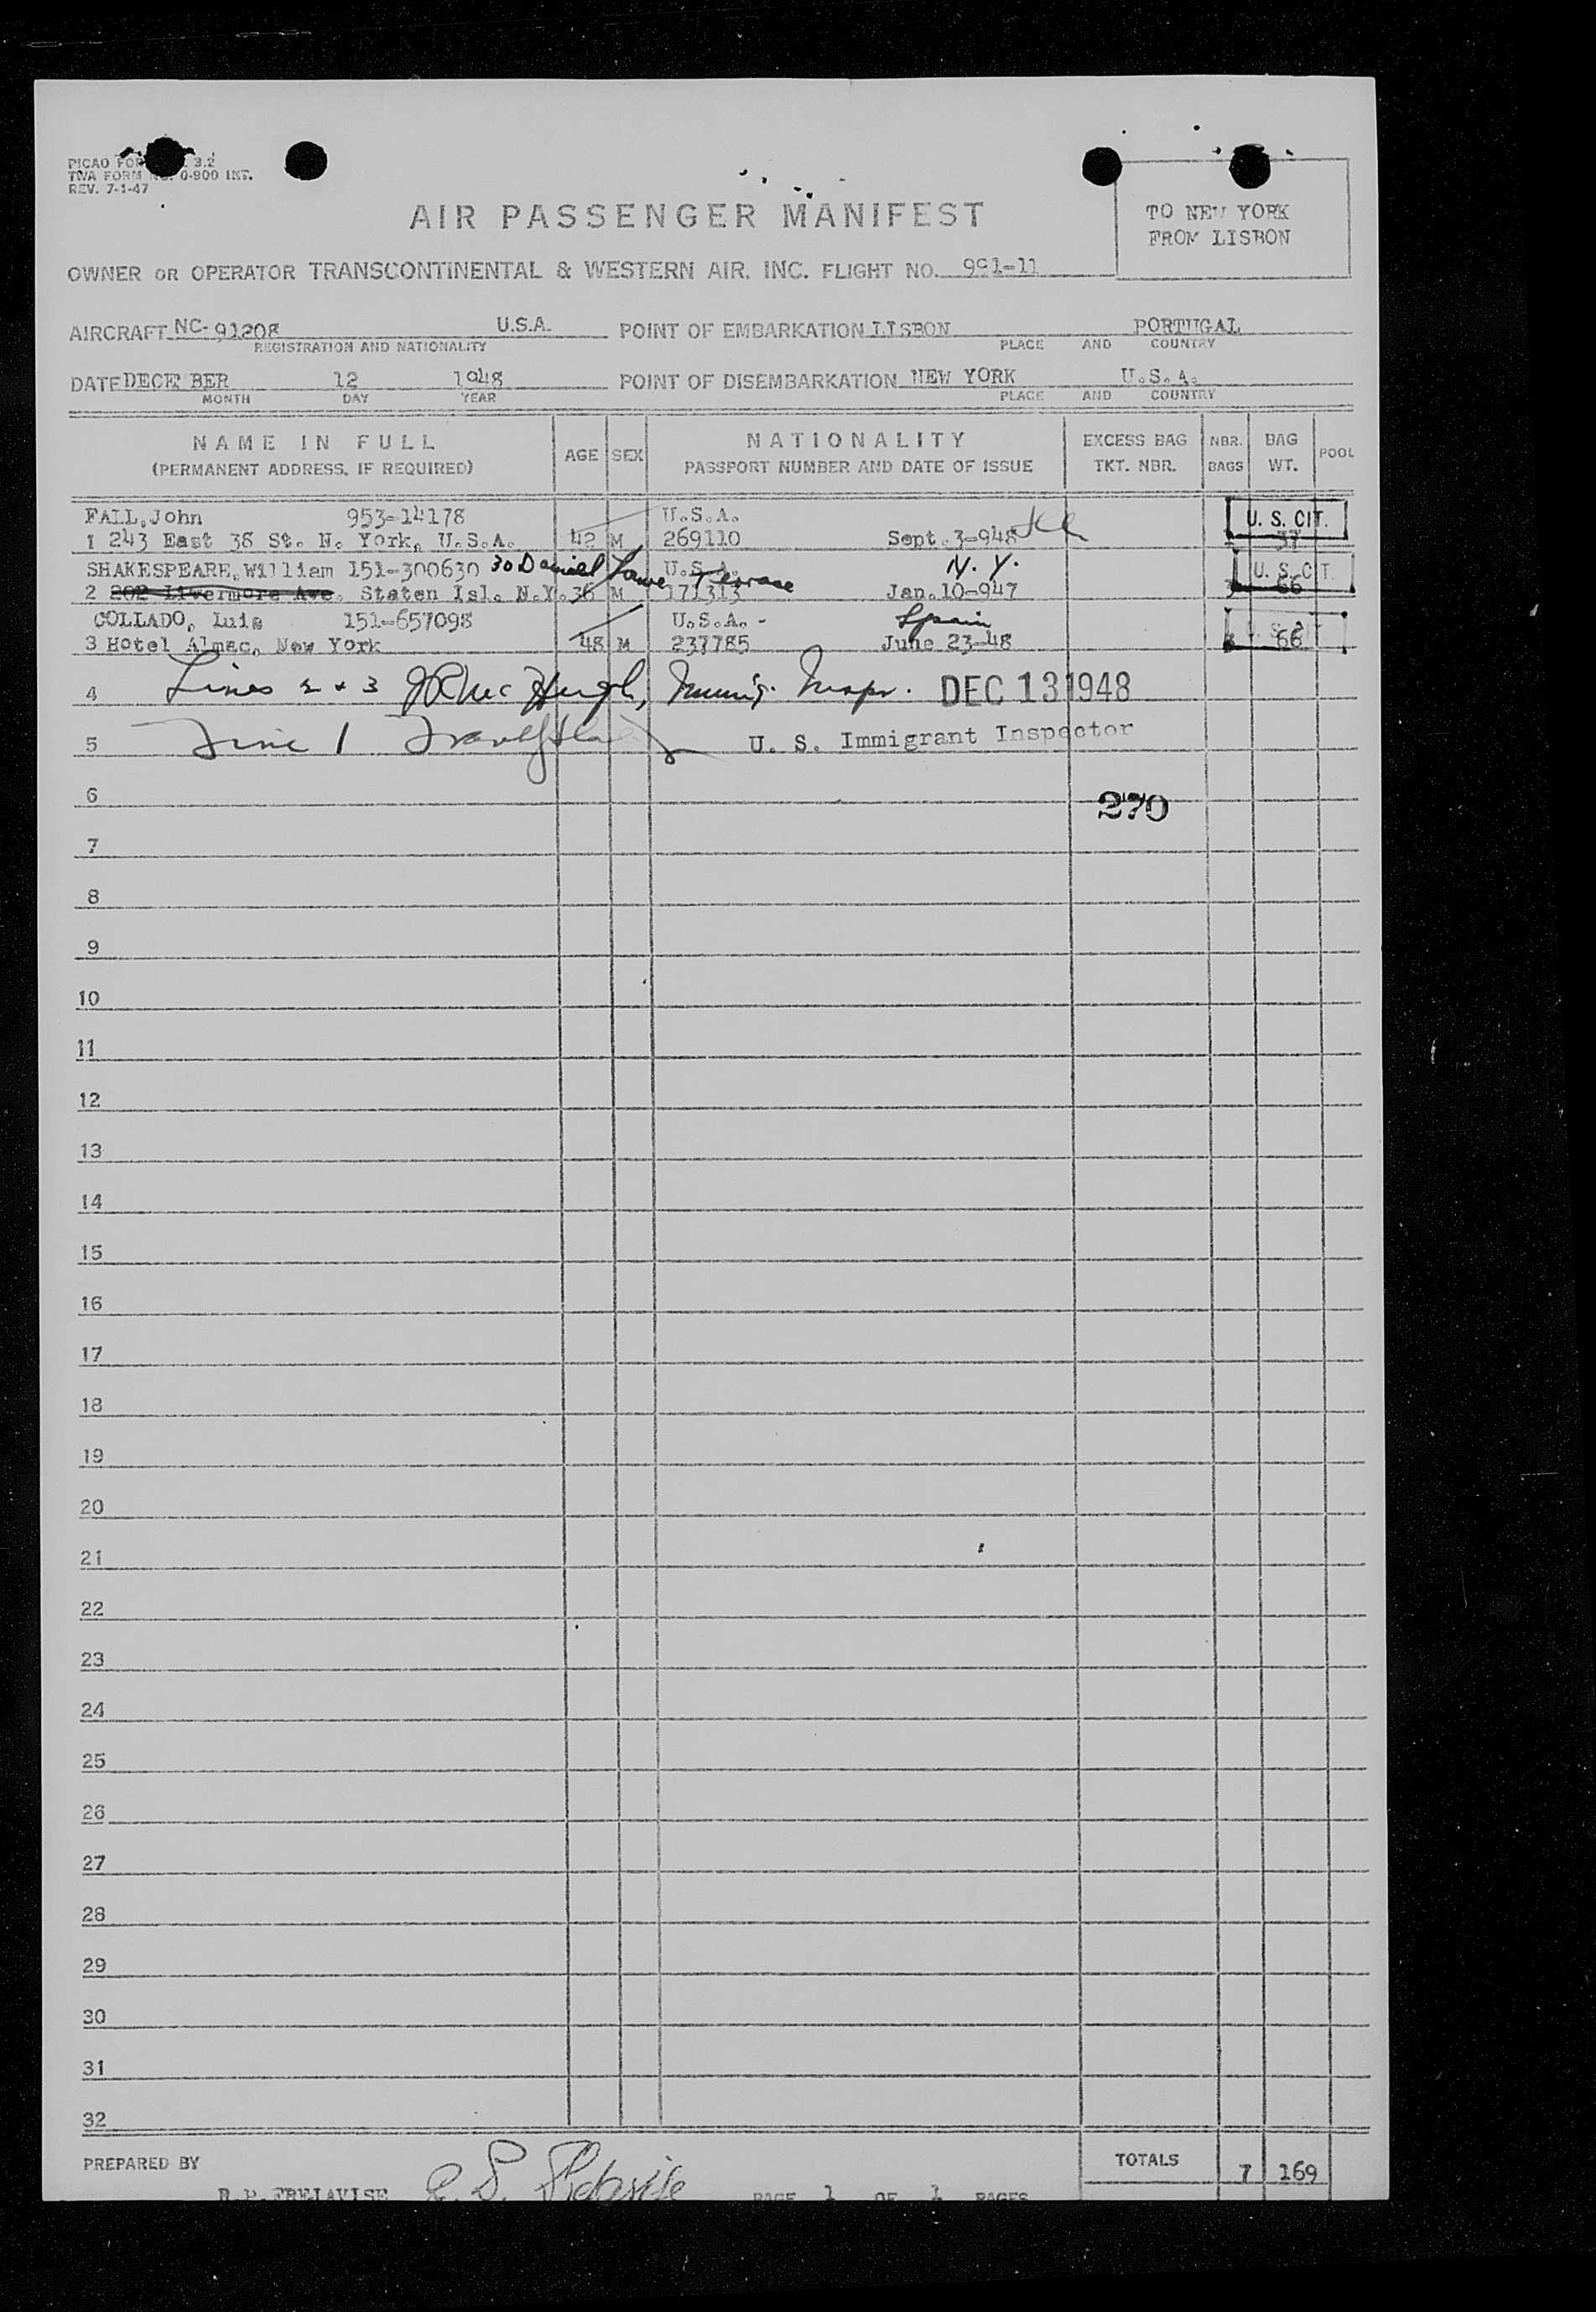 PICAO FOR 3.2
TWA FORM NO. 0-900 INT.
REV. 7-1-47
TO NEW YORK
FROM LISBON
AIR PASSENGER MANIFEST
OWNER OR OPERATOR TRANSCONTINENTAL & WESTERN AIR, INC. FLIGHT NO. 991-11
AIRCRAFT NC-91208 U.S.A. POINT OF EMBARKATION LISBON PORTUGAL
REGISTRATION AND NATIONALITY PLACE AND COUNTRY
DATE DECEMBER 12 1948 POINT OF DISEMBARKATION NEW YORK U.S.A.
MONTH DAY YEAR PLACE AND COUNTRY
NAME IN FULL AGE SEX NATIONALITY EXCESS BAG NBR. BAG POOL
(PERMANENT ADDRESS, IF REQUIRED) PASSPORT NUMBER AND DATE OF ISSUE TKT. NBR. BAGS WT.
FALL, John 953-14178 U.S.A. U. S. CIT.
1 243 East 38 St. N. York, U.S.A. 42 M 269110 Sept. 3-948 37
SHAKESPEARE, William 151-300630 30 Daniel Lowe Terrace U.S.A. N.Y. U. S. CIT.
2 202 Livermore Ave. Staten Isl. N.Y. 36 M 171313 Jan. 10-947 66
COLLADO, Luis 151-657098 U.S.A. - Spain
3 Hotel Almac, New York 48 M 237785 June 23-48 66
4 Lines 2 + 3 Immig. Inspr. DEC 13 1948
5 Line 1 U. S. Immigrant Inspector
6 270
7
8
9
10
11
12
13
14
15
16
17
18
19
20
21
22
23
24
25
26
27
28
29
30
31
32
PREPARED BY TOTALS 7 169
PAGE 1 OF 1 PAGES